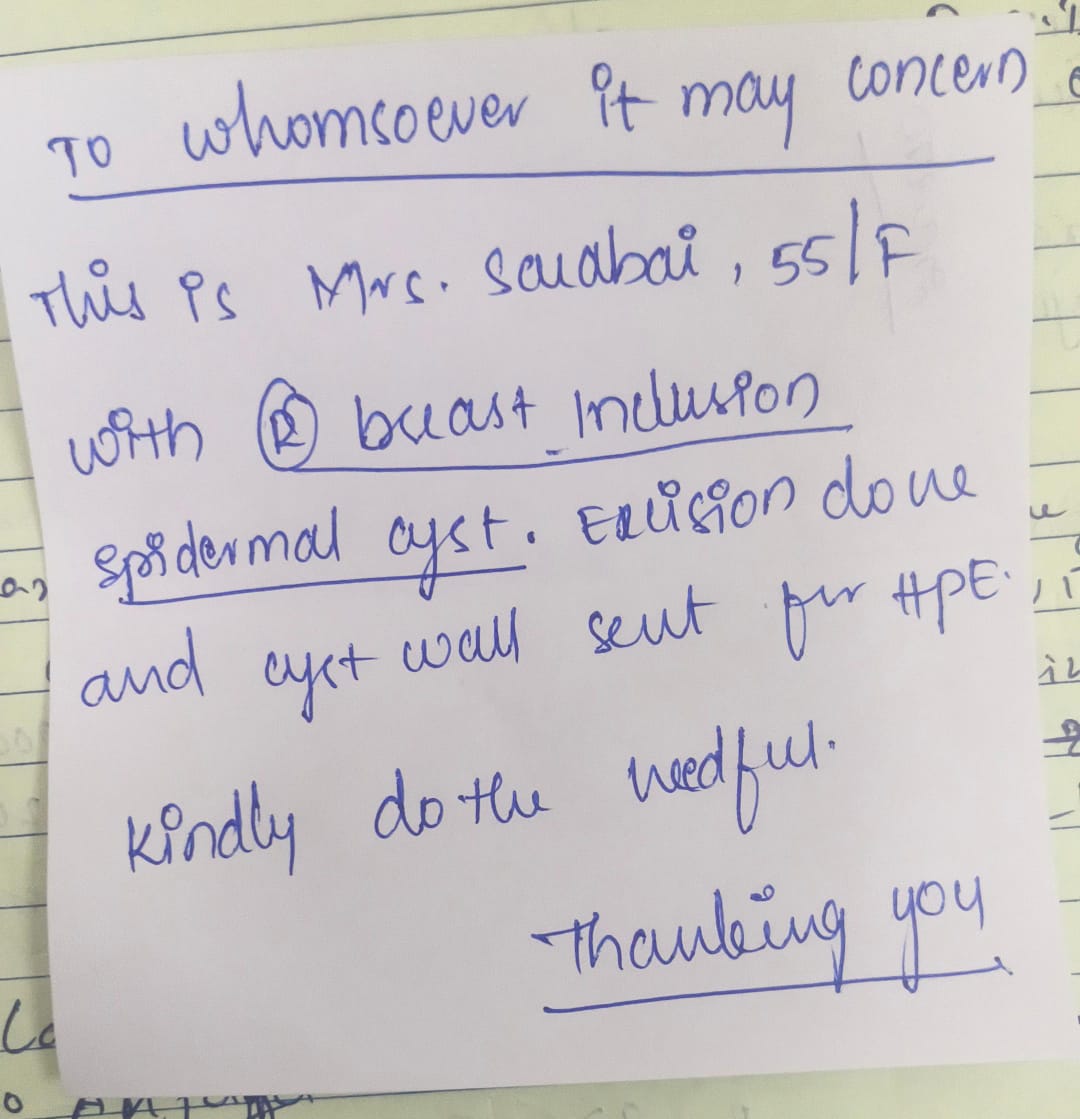 To whomsoever it may concern
This is Mrs. Saudabai, 55/F
with Ⓡ breast Inclusion
Epidermal cyst. Excision done
and cyst wall sent for HPE.
Kindly do the needful.
Thanking you